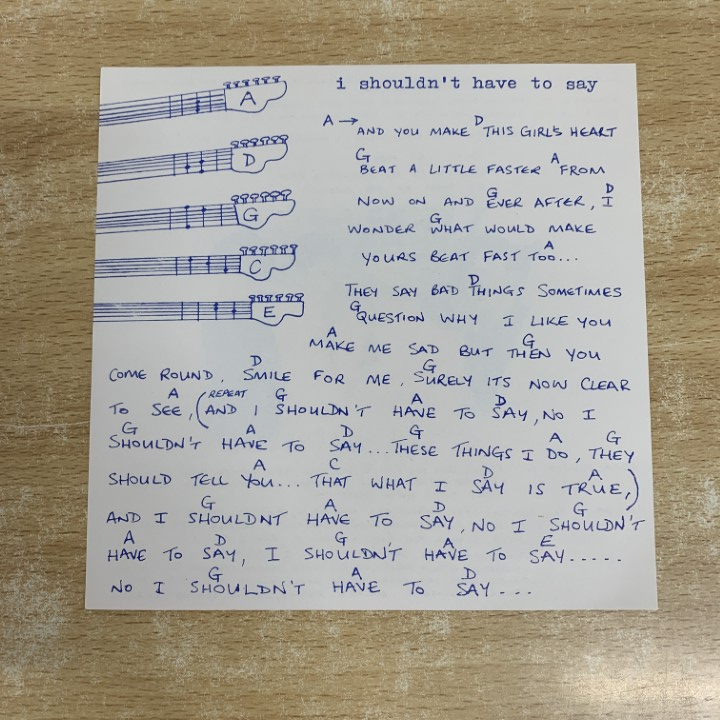 i shouldn't have to say
A
A → AND YOU MAKE D THIS GIRL'S HEART
D
G BEAT A LITTLE FASTER A FROM
G
NOW ON AND G EVER AFTER, D I
WONDER G WHAT WOULD MAKE
C
YOURS BEAT FAST A TOO...
E
THEY SAY BAD D THINGS SOMETIMES
G QUESTION WHY I LIKE YOU
A MAKE ME SAD BUT G THEN YOU
COME ROUND, D SMILE FOR ME, G SURELY ITS NOW CLEAR
TO A SEE, (REPEAT AND I G SHOULDN'T A HAVE TO D SAY, NO I
G SHOULDN'T A HAVE TO D SAY... G THESE THINGS I A DO, G THEY
SHOULD TELL A YOU... C THAT WHAT I D SAY IS A TRUE,)
AND I G SHOULDNT A HAVE TO D SAY, NO I G SHOULDN'T
A HAVE TO D SAY, I G SHOULDN'T A HAVE TO E SAY.....
NO I G SHOULDN'T A HAVE TO D SAY...